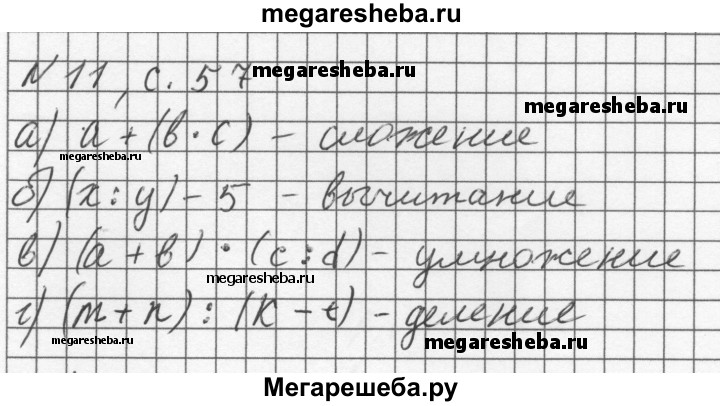 megaresheba.ru
N 11, с. 57 megaresheba.ru
megaresheba.ru
а) a + (в · c) - сложение
megaresheba.ru
б) (x : y) - 5 - вычитание
в) (a + в) · (c : d) - умножение
megaresheba.ru
г) (m + n) : (k - t) - деление
megaresheba.ru
megaresheba.ru
Мегарешеба.ру